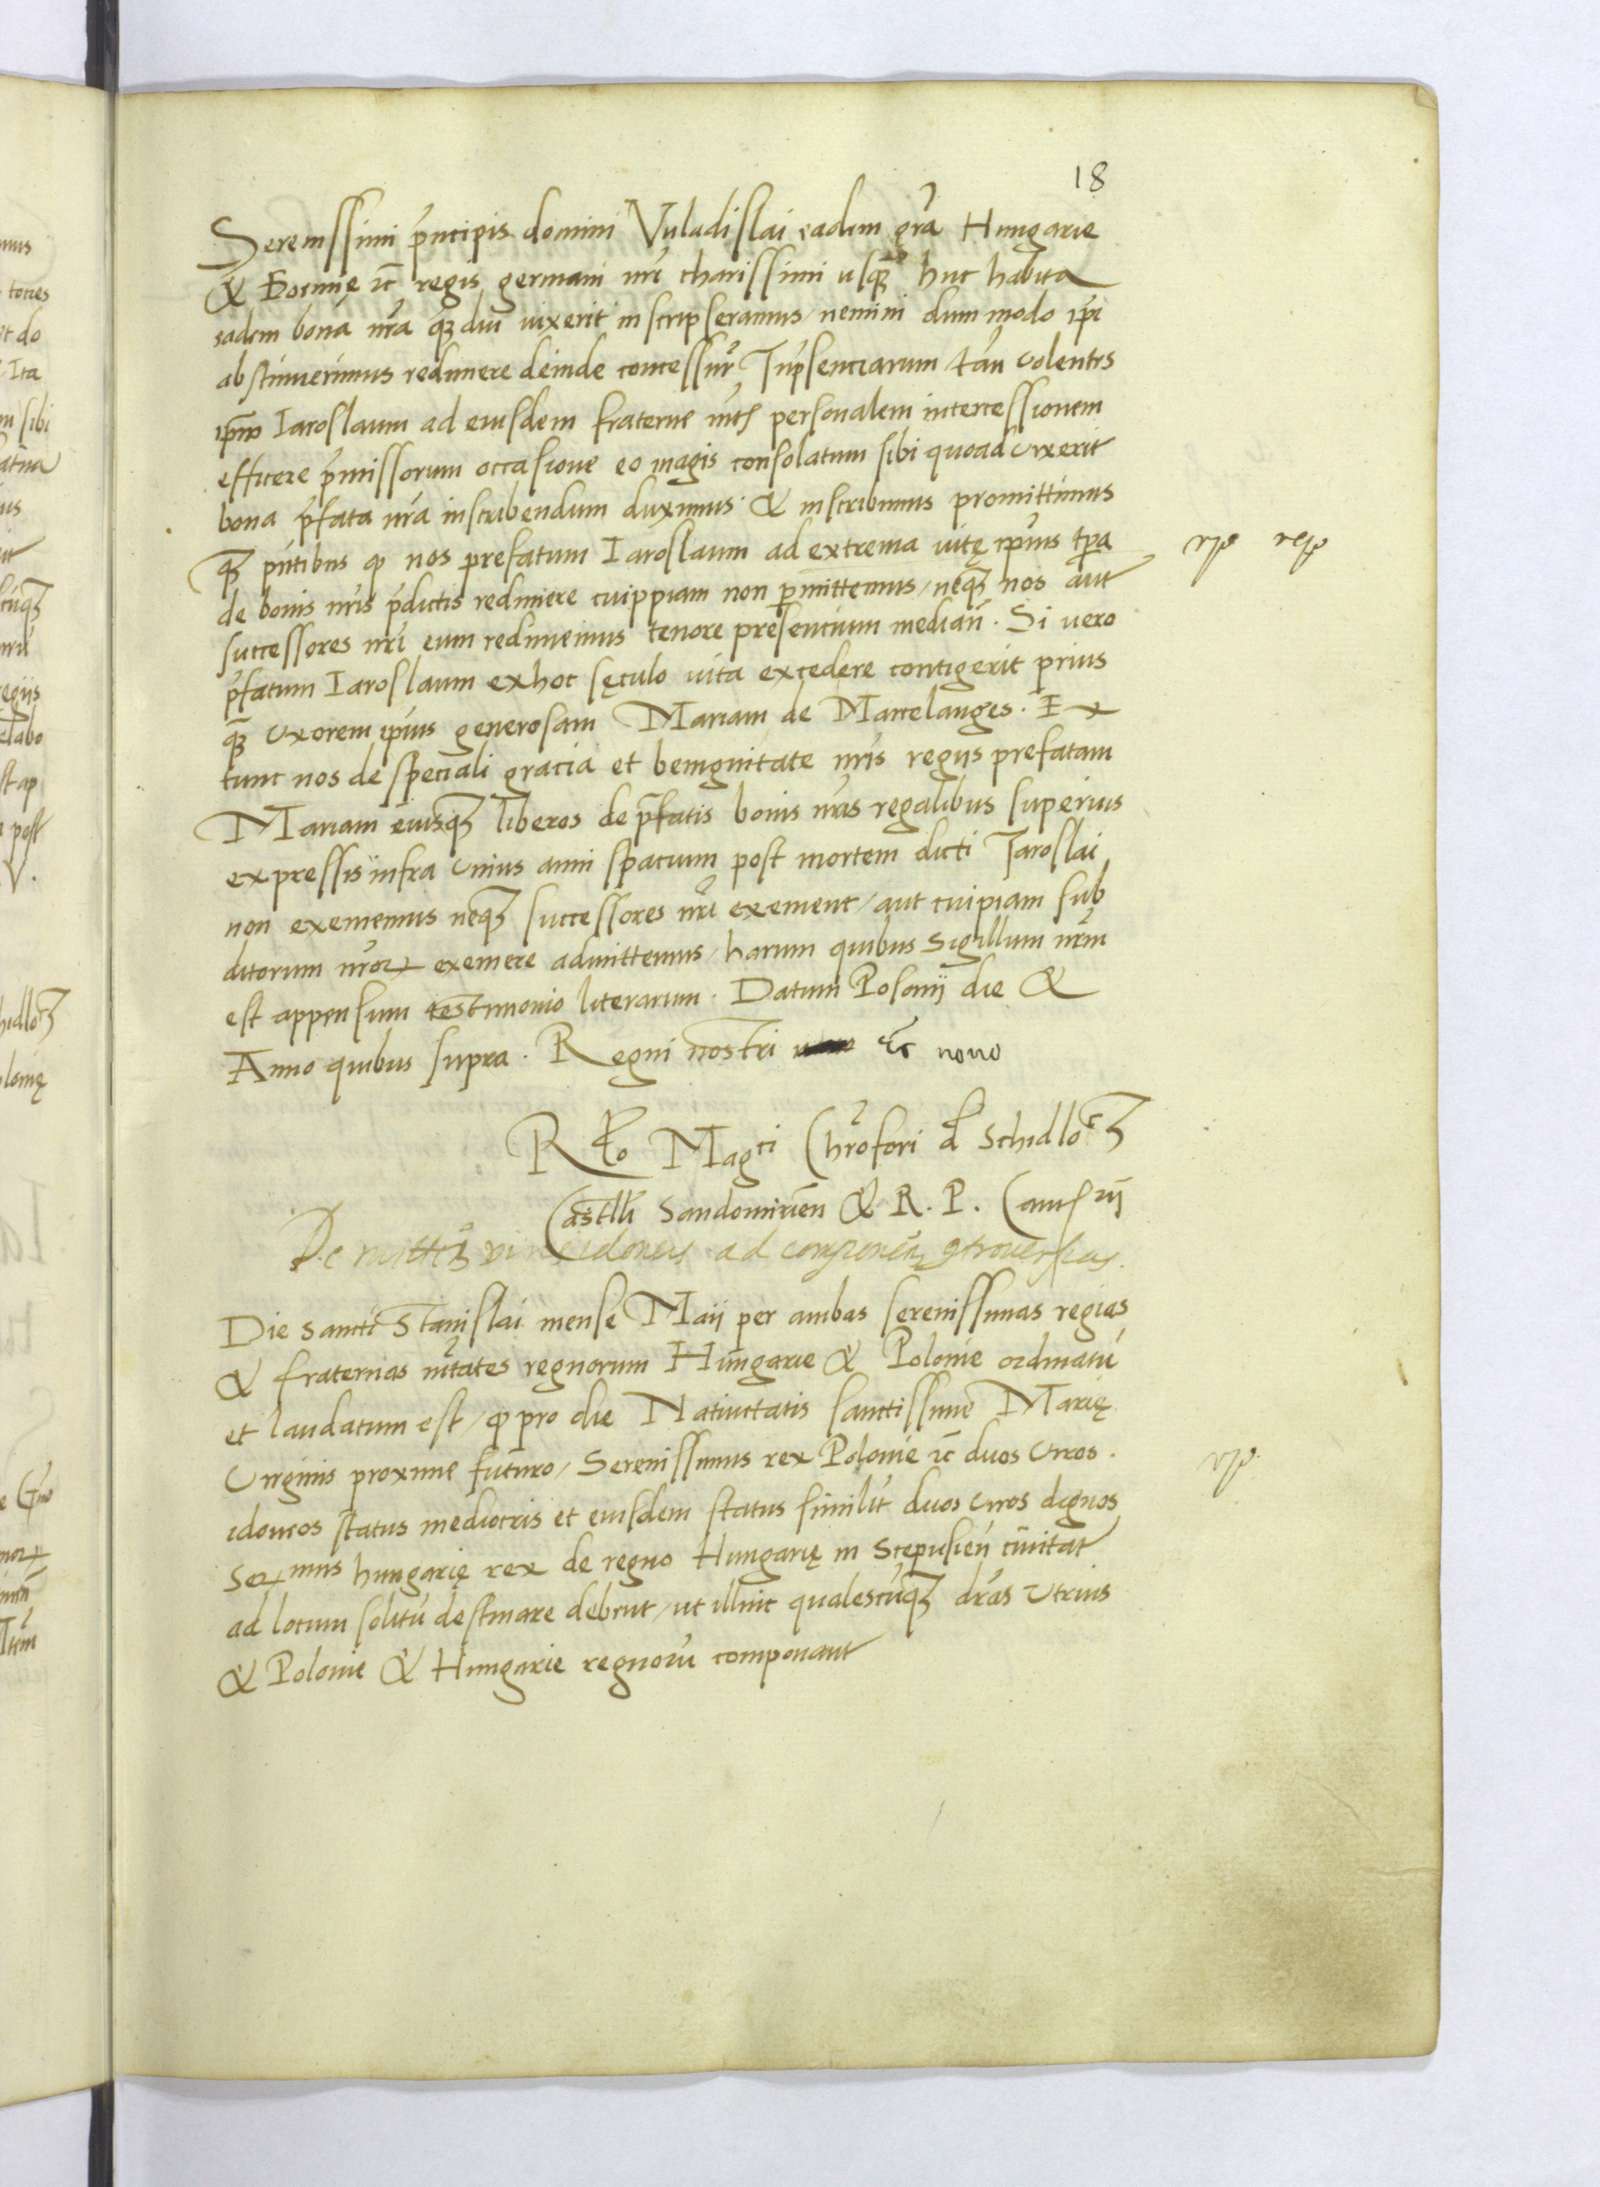 18
Serenissimi pñcipis domini Vuladislai eadem gra Hungarie
& Boemię ꝛc regis germani nri charissimi usq huc habita
eadem bona nra qdiu vixerit inscripseramus / nemini dum modo ipi
abstinuerimus redimere deinde concessur Tenore presenciarum volentes
ipm Iaroslaum ad eiusdem fraterne mtis personalem intercessionem
efficere pmissorum occasione eo magis consolatum sibi quoad vixerit
bona pfata nra inscribendum duximus & inscribimus promittimus
qꝫ pntibus ꝙ nos prefatum Iaroslaum ad extrema vitę ipius tpa
de bonis nris pdictis redimere cuippiam non pmittemus / neqꝫ nos aut
successores nri eum redimemus tenore presencium median. Si vero
pfatum Iaroslaum ex hoc sęculo vita excedere contigerit prius
qꝫ uxorem ipius generosam Mariam de Marcelanges. Ex
tunc nos de speciali gracia et benignitate nris regiis prefatam
Mariam eiusqꝫ liberos de pfatis bonis nris regalibus superius
expressis infra unius anni spacium post mortem dicti Iaroslai
non exememus neqꝫ successores nri exement / aut cuipiam sub
ditorum nroꝝ exemere admittemus / harum quibus sigillum nrm
est appensum testimonio literarum. Datum Posonii die &
Anno quibus supra. Regni nostri ꝛc nono
Rlo Magci Chrofori d Schidloꝫ
Castlli Sandomirien & R. P. Canrii
De mittẽ idoneis ad componen ꝯtrouersias.
Die sancti Stanislai mense Maii per ambas serenissimas regias
& fraternas mtates regnorum Hungarie & Polonie ordinatu
et laudatum est / ꝙ pro die Natiuitatis sanctissime Marię
Virginis proxime futuro / Serenissimus rex Polonie ꝛc duos viros.
idoneos status mediocris et eiusdem status similit duos viros dignos
Seꝝmus hungarię rex de regno Hungarię in Scepusien ciuitat
ad locum solitu destinare debent / ut illinc qualescuqꝫ dras utrius
& Polonie & Hungarie regnoru componant